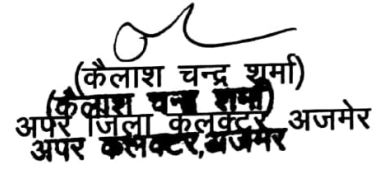 (कैलाश चन्द्र शर्मा)
(कैलाश चन्द्र शर्मा)
अपर जिला कलक्टर, अजमेर
अपर कलक्टर,अजमेर